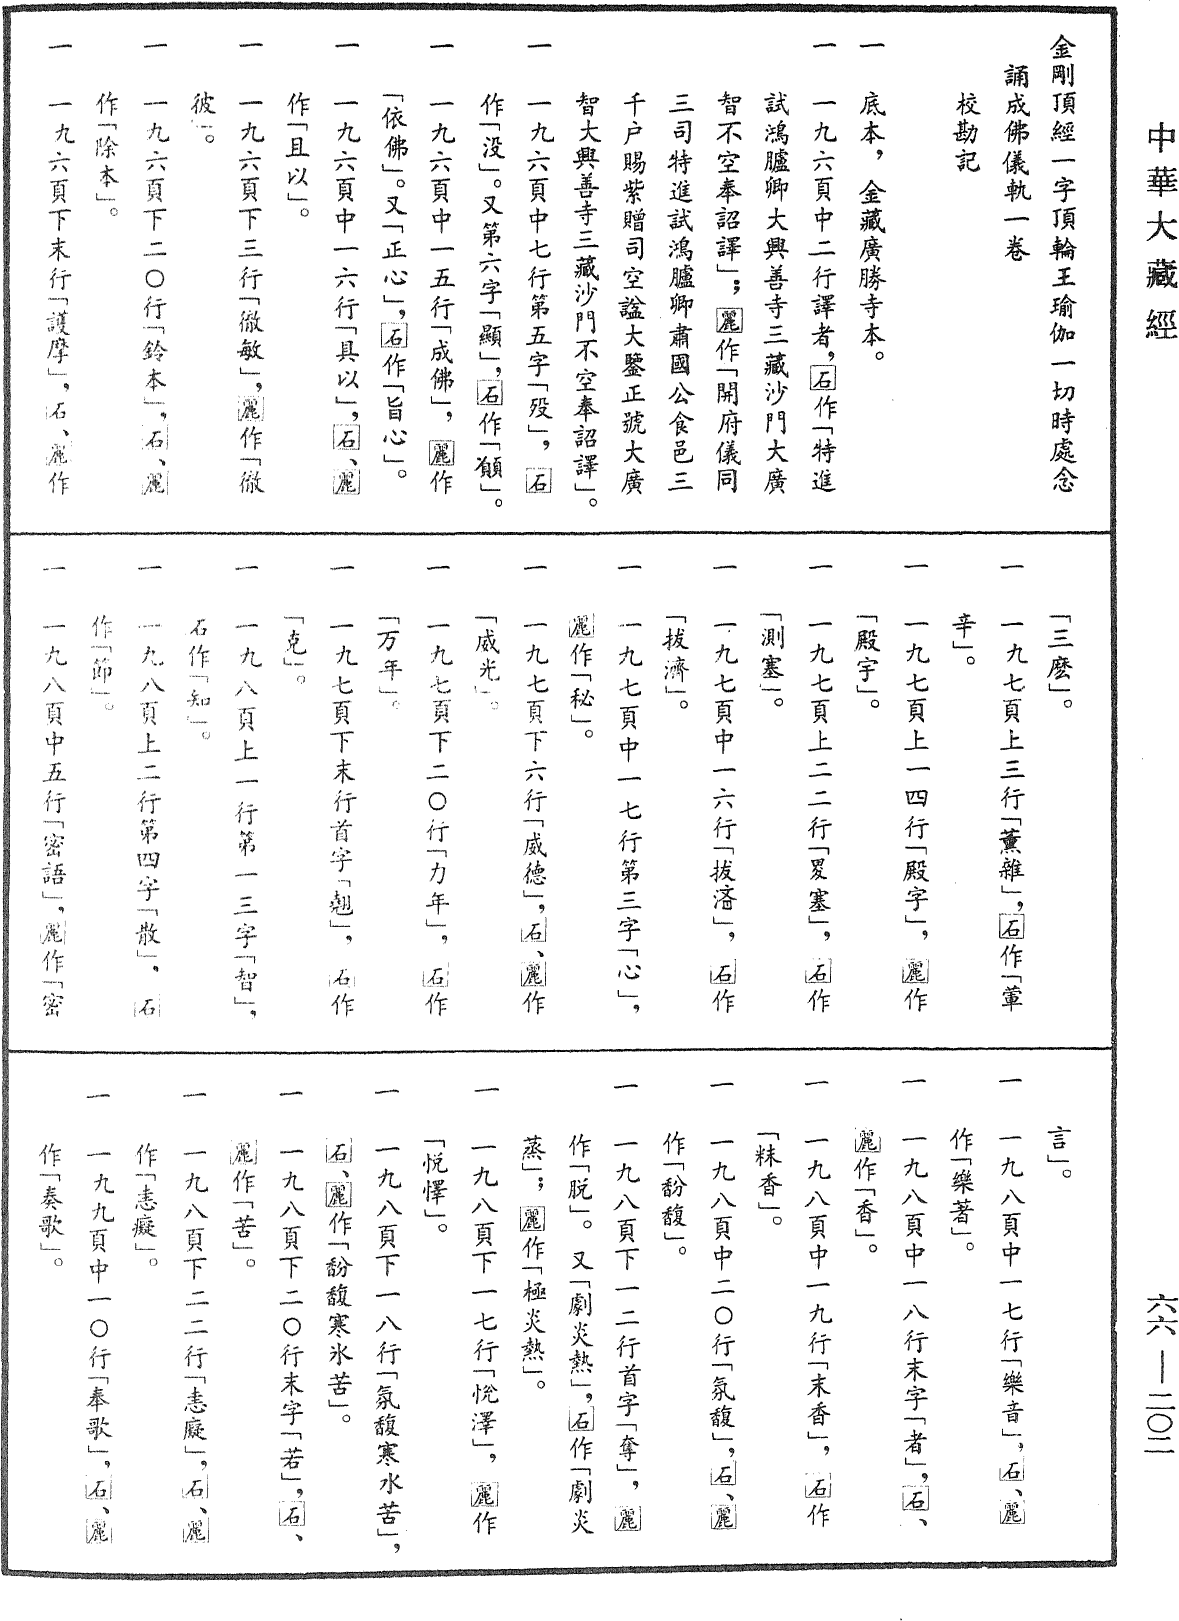 中華大藏經
六六—二〇二
金剛頂經一字頂輪王瑜伽一切時處念
誦成佛儀軌一卷
校勘記
一　底本，金藏廣勝寺本。
一　一九六頁中二行譯者，石作「特進
試鴻臚卿大興善寺三藏沙門大廣
智不空奉詔譯」；麗作「開府儀同
三司特進試鴻臚卿肅國公食邑三
千户賜紫贈司空諡大鑒正號大廣
智大興善寺三藏沙門不空奉詔譯」。
一　一九六頁中七行第五字「歿」，石
作「没」。又第六字「顯」，石作「顛」。
一　一九六頁中一五行「成佛」，麗作
「依佛」。又「正心」，石作「旨心」。
一　一九六頁中一六行「具以」，石、麗
作「且以」。
一　一九六頁下三行「徹敏」，麗作「徹
彼」。
一　一九六頁下二〇行「鈴本」，石、麗
作「除本」。
一　一九六頁下末行「護摩」，石、麗作
「三麽」。
一　一九七頁上三行「薰雜」，石作「葷
辛」。
一　一九七頁上一四行「殿字」，麗作
「殿宇」。
一　一九七頁上二二行「畟塞」，石作
「測塞」。
一　一九七頁中一六行「拔済」，石作
「拔濟」。
一　一九七頁中一七行第三字「心」，
麗作「秘」。
一　一九七頁下六行「威德」，石、麗作
「威光」。
一　一九七頁下二〇行「力年」，石作
「万年」。
一　一九七頁下末行首字「剋」，石作
「克」。
一　一九八頁上一行第一三字「智」，
石作「知」。
一　一九八頁上二行第四字「散」，石
作「節」。
一　一九八頁中五行「密語」，麗作「密
言」。
一　一九八頁中一七行「樂音」，石、麗
作「樂著」。
一　一九八頁中一八行末字「者」，石、
麗作「香」。
一　一九八頁中一九行「末香」，石作
「粖香」。
一　一九八頁中二〇行「氛馥」，石、麗
作「馚馥」。
一　一九八頁下一二行首字「奪」，麗
作「脱」。又「劇炎熱」，石作「劇炎
蒸」；麗作「極炎熱」。
一　一九八頁下一七行「悅澤」，麗作
「悅懌」。
一　一九八頁下一八行「氛馥寒水苦」，
石、麗作「馚馥寒氷苦」。
一　一九八頁下二〇行末字「若」，石、
麗作「苦」。
一　一九八頁下二二行「恚癡」，石、麗
作「恚癡」。
一　一九九頁中一〇行「奉歌」，石、麗
作「奏歌」。